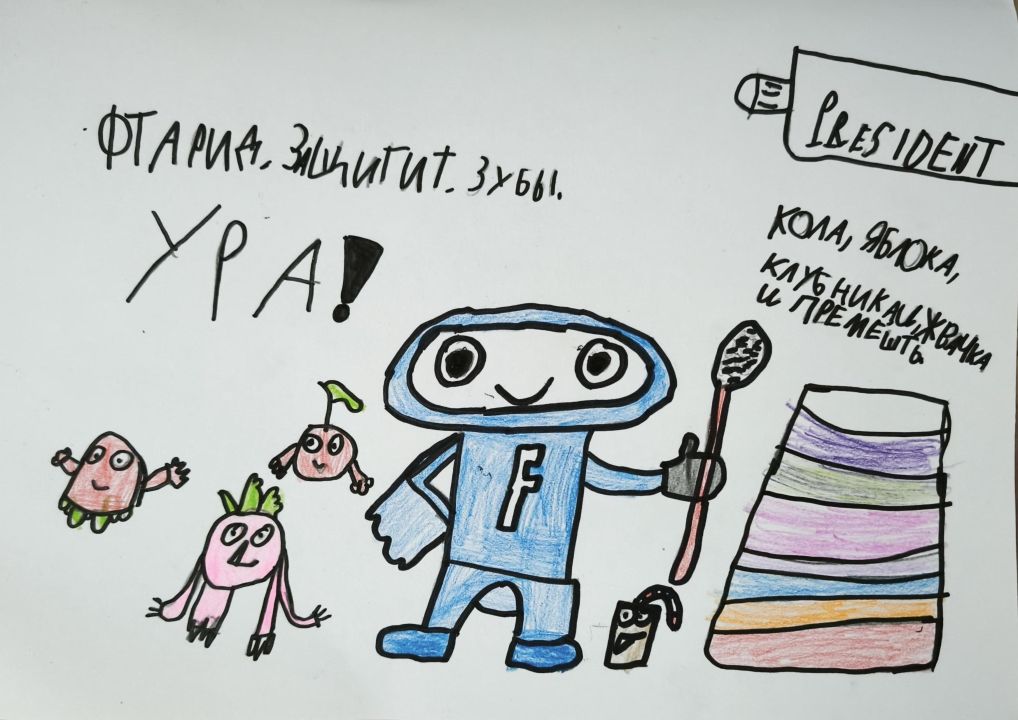 ФТАРИД. ЗАЩИГИТ. ЗУБЫ.
УРА!
PRESIDENT
КОЛА, ЯБЛОКА,
КЛУБНИКА И, ЖВАЧКА
И ПРЕМЕШТЬ
F